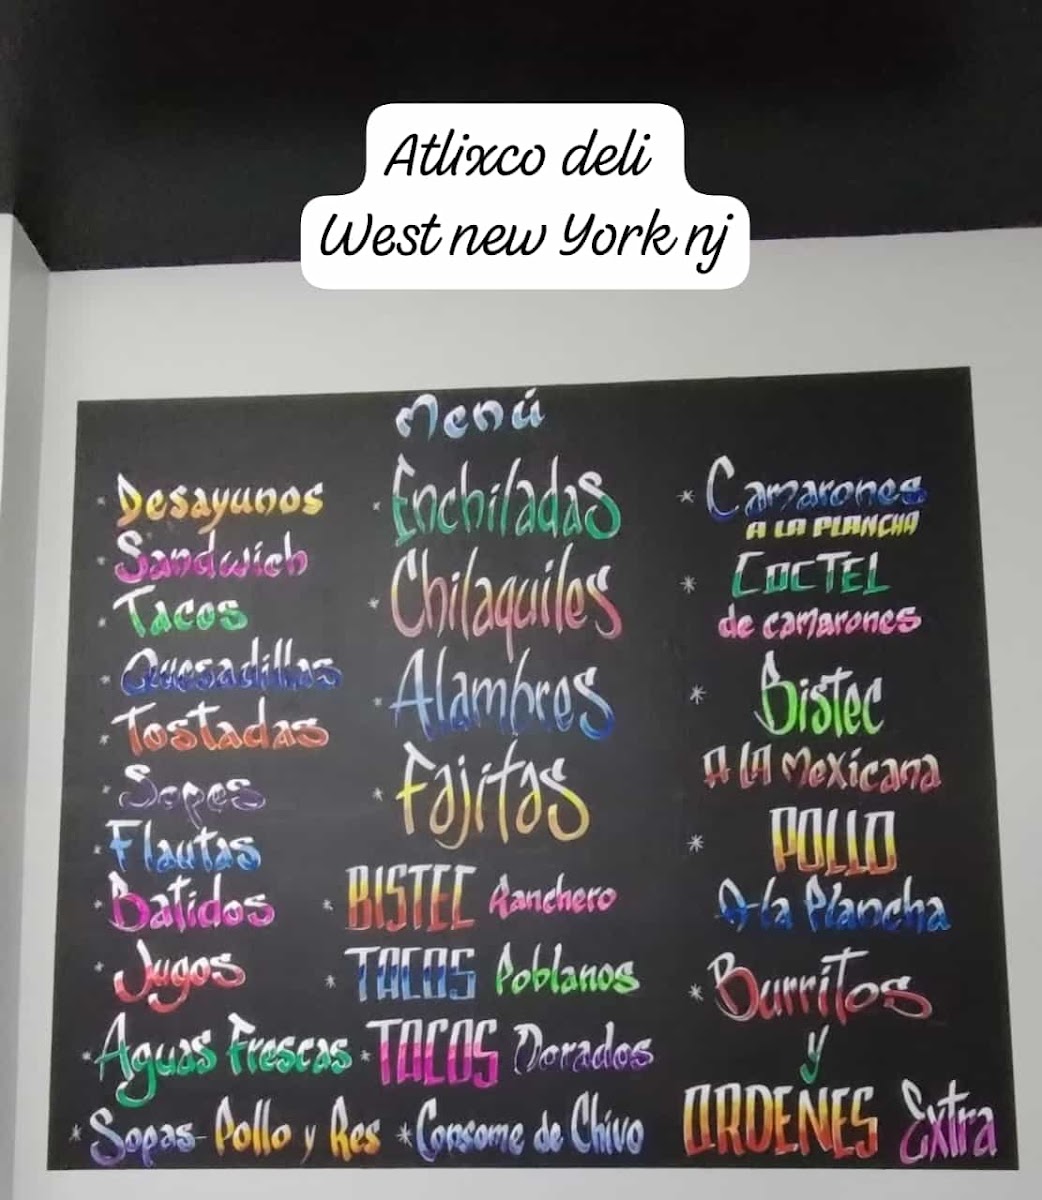 Atlixco deli
West new York nj
Menú
* Desayunos
* Sandwich
* Tacos
* Quesadillas
* Tostadas
* Sopes
* Flautas
* Batidos
* Jugos
* Aguas Frescas
* Sopas - Pollo y Res
* Enchiladas
* Chilaquiles
* Alambres
* Fajitas
* BISTEC Ranchero
* TACOS Poblanos
* TACOS Dorados
* Consome de Chivo
* Camarones
A LA PLANCHA
* COCTEL
de camarones
* Bistec
A LA Mexicana
* POLLO
A-la Plancha
* Burritos
y
ORDENES Extra